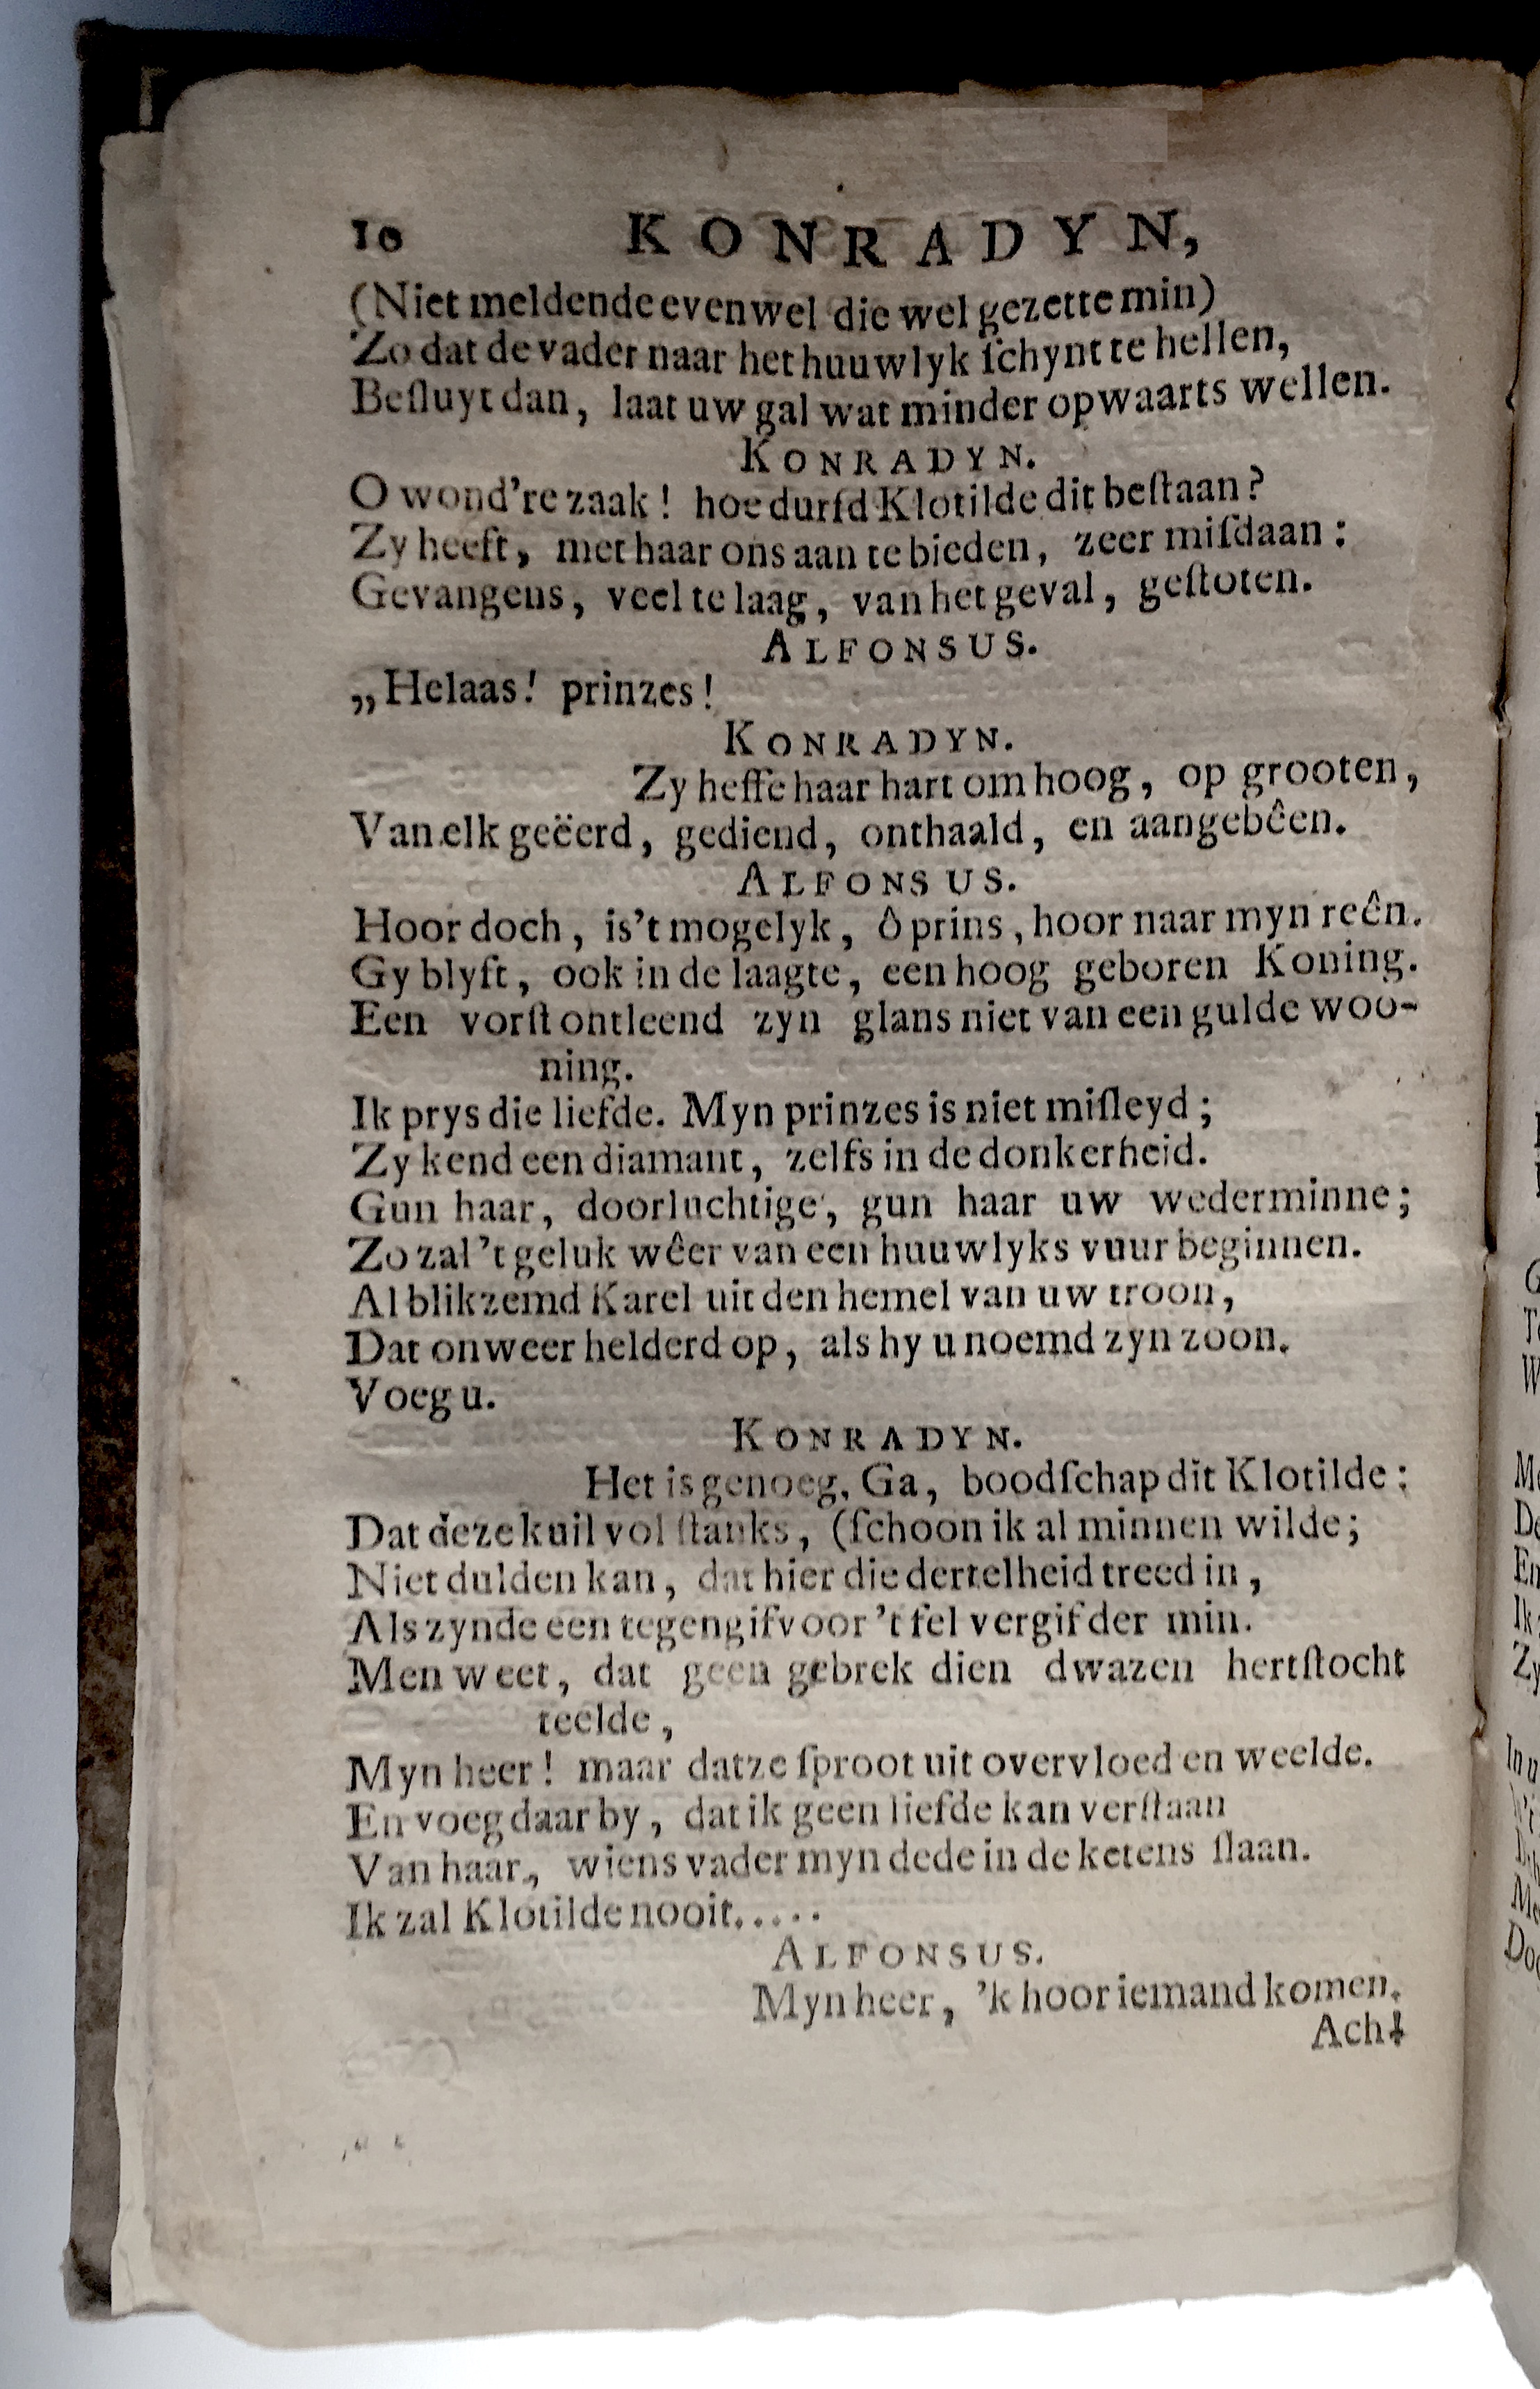 10 KONRADYN,
(Niet meldende evenwel die wel gezette min)
Zo dat de vader naar het huuwlyk ſchynt te hellen,
Beſluyt dan, laat uw gal wat minder opwaarts wellen.
KONRADYN.
O wond're zaak! hoe durſd Klotilde dit beſtaan?
Zy heeft, met haar ons aan te bieden, zeer miſdaan:
Gevangens, veel te laag, van het geval, geſtoten.
ALFONSUS.
„Helaas! prinzes!
KONRADYN.
Zy heffe haar hart om hoog, op grooten,
Van elk geëerd, gediend, onthaald, en aangebêen.
ALFONSUS.
Hoor doch, is't mogelyk, ô prins, hoor naar myn reên.
Gy blyft, ook in de laagte, een hoog geboren Koning.
Een vorſt ontleend zyn glans niet van een gulde woo-
ning.
Ik prys die liefde. Myn prinzes is niet miſleyd;
Zy kend een diamant, zelfs in de donkerheid.
Gun haar, doorluchtige, gun haar uw wederminne;
Zo zal 't geluk wêer van een huuwlyks vuur beginnen.
Al blikzemd Karel uit den hemel van uw troon,
Dat onweer helderd op, als hy u noemd zyn zoon.
Voeg u.
KONRADYN.
Het is genoeg. Ga, boodſchap dit Klotilde:
Dat deze kuil vol ſtanks, (ſchoon ik al minnen wilde;
Niet dulden kan, dat hier die dertelheid treed in,
Als zynde een tegengif voor 't fel vergif der min.
Men weet, dat geen gebrek dien dwazen hertſtocht
teelde,
Myn heer! maar datze ſproot uit overvloed en weelde.
En voeg daar by, dat ik geen liefde kan verſtaan
Van haar, wiens vader myn dede in de ketens ſlaan.
Ik zal Klotilde nooit.....
ALFONSUS.
Myn heer, 'k hoor iemand komen.
Ach!